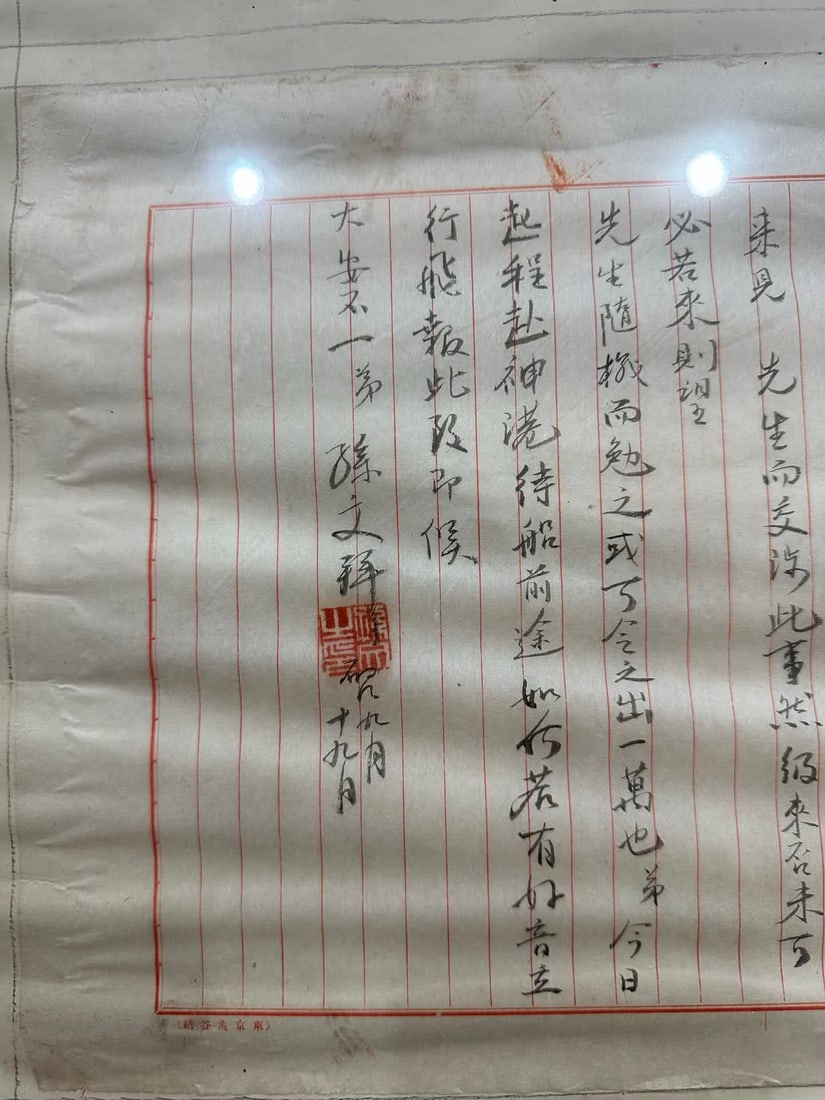 来見 先生而交涉此事然彼來否未可
必若來則望
先生隨機而勉之或可令之出一萬也弟今日
起程赴神港待船前途如何若有好音立
行飛報此致即候
大安不一弟 孫文拜
九月
十九日
孫文之印
東京